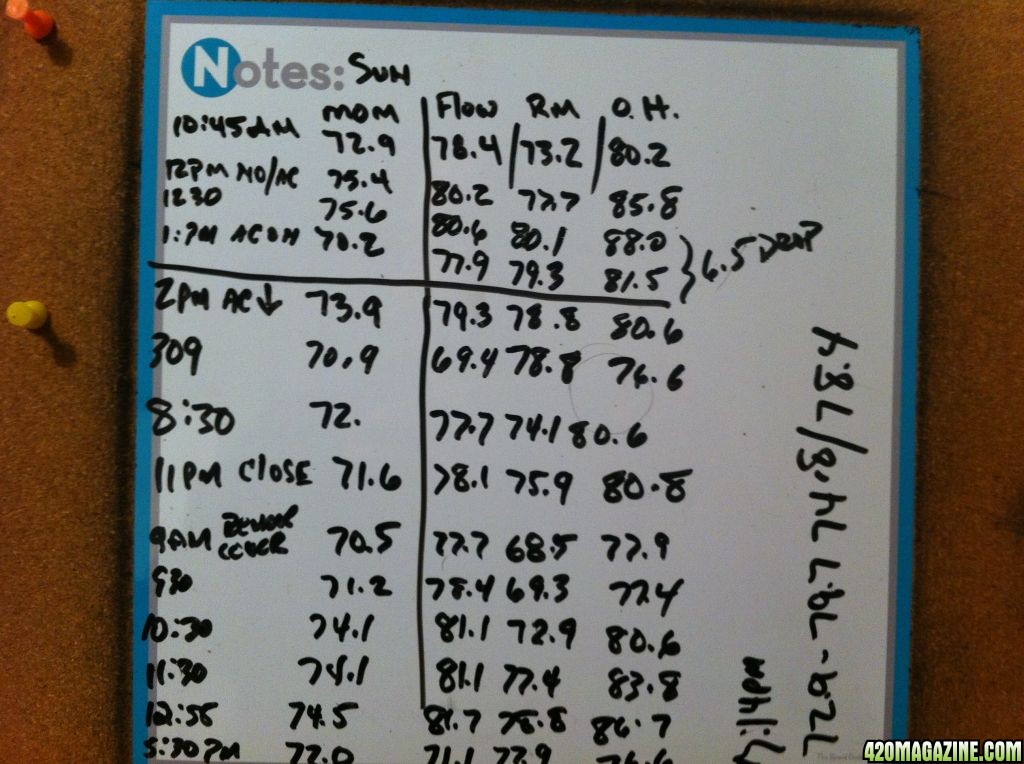 Notes: SUN
MOM Flow RM O.H.
10:45AM 72.9 78.4 / 73.2 / 80.2
12PM NO/AC 75.4 80.2 77.7 85.8
1230 75.6 80.6 80.1 88.0
1:PM AC ON 70.2 77.9 79.3 81.5 } 6.5 DROP
2PM AC ↓ 73.9 79.3 78.8 80.6
309 70.9 69.4 78.8 76.6
8:30 72. 77.7 74.1 80.6
11PM CLOSE 71.6 78.1 75.9 80.8
9AM COVER 70.5 77.7 68.5 77.9
930 71.2 78.4 69.3 77.4
10:30 74.1 81.1 72.9 80.6
11:30 74.1 81.1 77.4 83.8
12:55 74.5 81.7 78.8 86.7
5:30PM 72.0 71.1 77.9 76.6
420MAGAZINE.COM